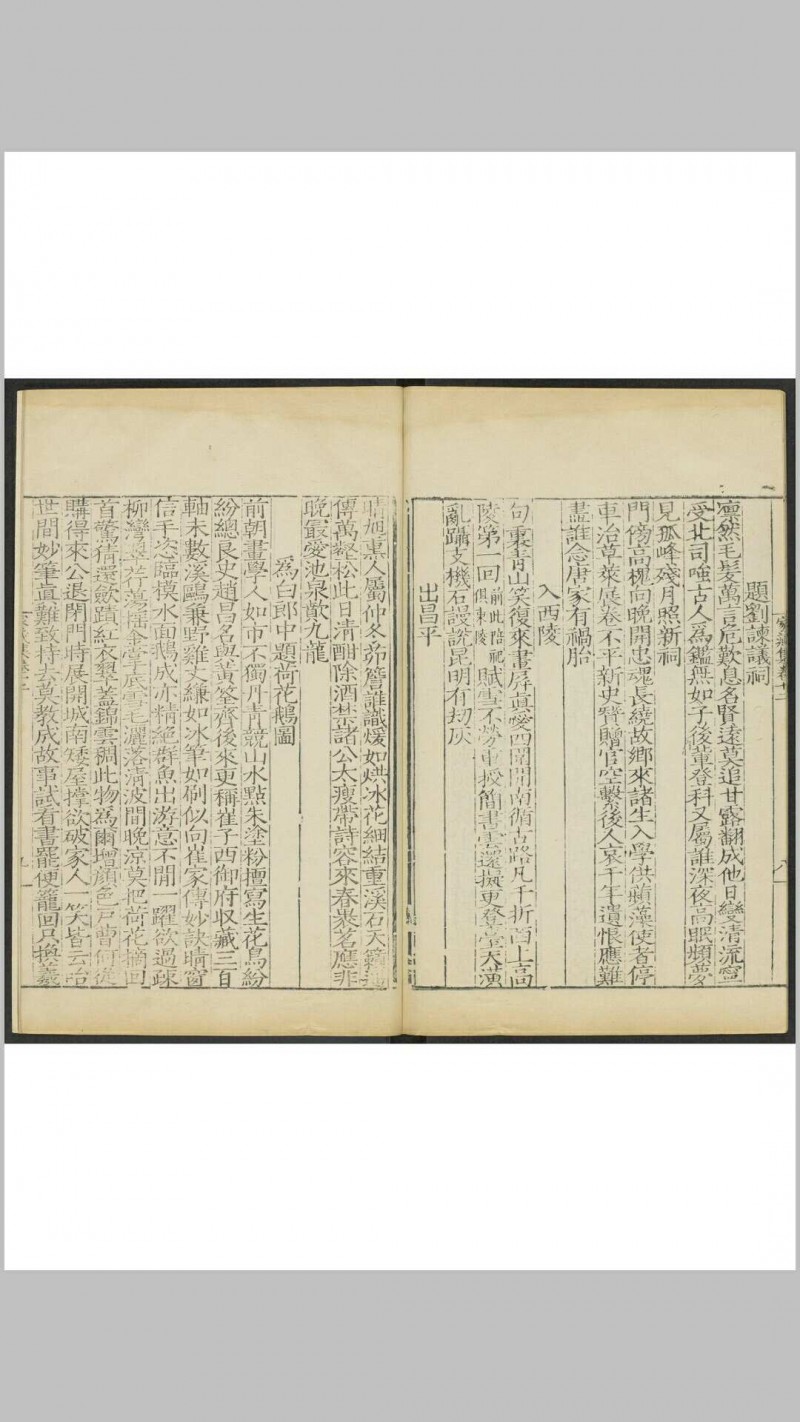 題劉諫議祠
凛然毛髮萬言危歎息名賢遠莫追甘露翻成他日變清流寧
受北司嗤古人爲鑑無如子後輩登科又屬誰深夜高眠頻夢
見孤峰殘月照新祠
門傍高槐向晚開忠魂長繞故鄉來諸生入學供蘋藻使者停
車治草萊展卷不平新史贊贈官空繫後人哀千年遺恨應難
盡誰念唐家有禍胎
入西陵
句裏青山笑復來畫屏真愛四圍開南循古路凡千折西上高
陵第一回前此陪祀俱東陵賦雪不勞重授簡書雲還擬更登臺天潢
亂躋支機石謾說昆明有刼灰
出昌平
晴旭熏人屬仲冬茆簷誰識煖如烘冰花細結重溪石天籟
傳萬壑松此日清酣除酒禁諸公太瘦帶詩容來春裝茗應非
晚最愛池泉歕九龍
爲白郎中題荷花鵝圖
前朝畫學人如市不獨丹青競山水點朱塗粉擅寫生花鳥紛
紛總良史趙昌名與黃筌齊後來更稱崔子西御府收藏三百
軸未數溪鷗兼野雞丈縑如冰筆如剜似向崔家傳妙訣晴窗
信手恣臨模水面鵝成亦精絕群魚出游意不閒一躍欲過疎
柳灣 荇蕩揺金掌底雪毛灑落清波間晚涼莫把荷花摘回
首驚猜還歛蹟紅衣翠蓋錦雲稠此物爲爾增顔色戸曹何從
購得來公退閉門時展開城南矮屋撑欲破家人一笑皆云咍
世間妙筆直難致持去莫教成故事試看書罷便籠回只換羲